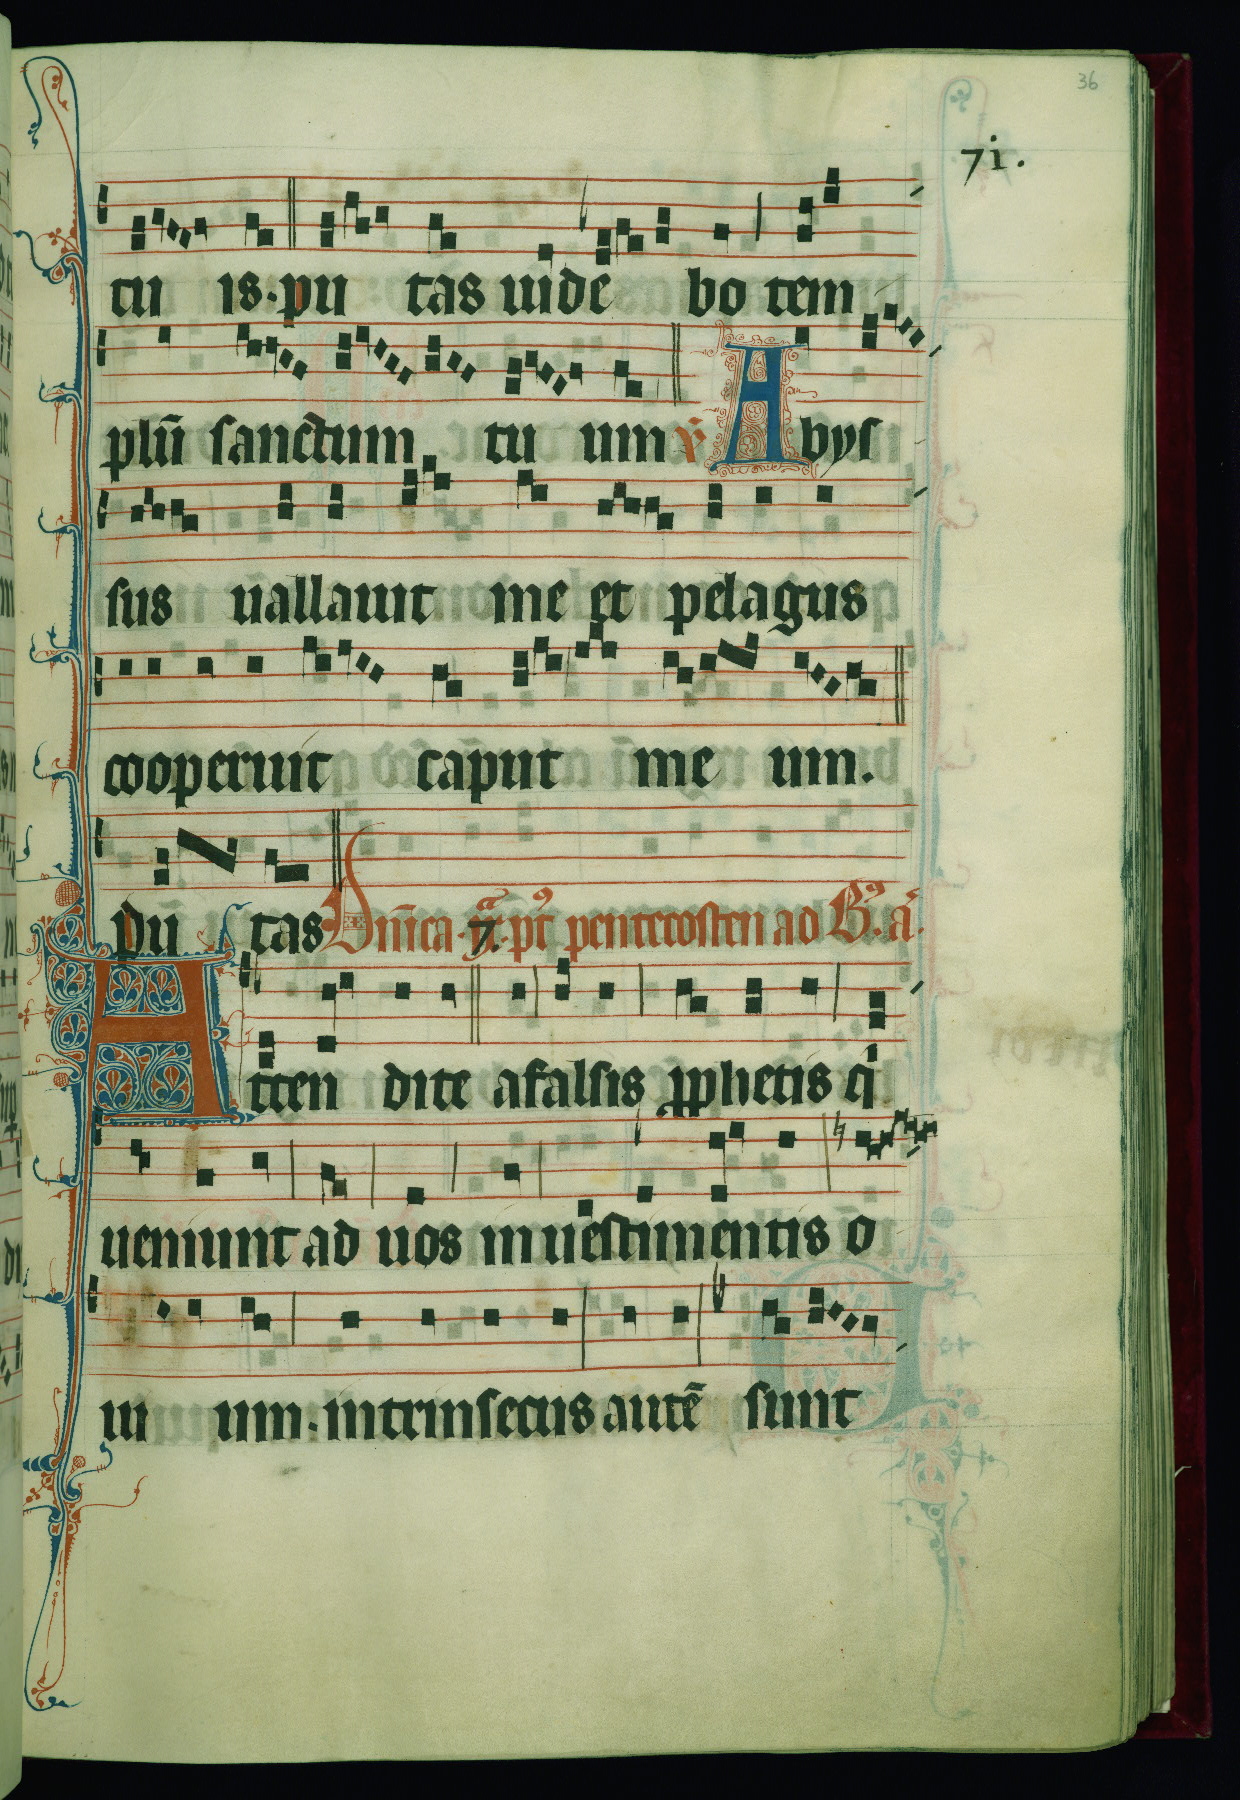 36
7i.
tu is. pu tas uide bo tem
plū sanctum tu um ℣ Abys
sus uallauit me et pelagus
cooperuit caput me um.
pu tas Dn̄ica . 7 . pꝰt pentecosten ad B̃. ā.
Atten dite a falsis ꝓphetis q̍
ueniunt ad uos in uestimentis o
ui um. intrinsecus autē sunt